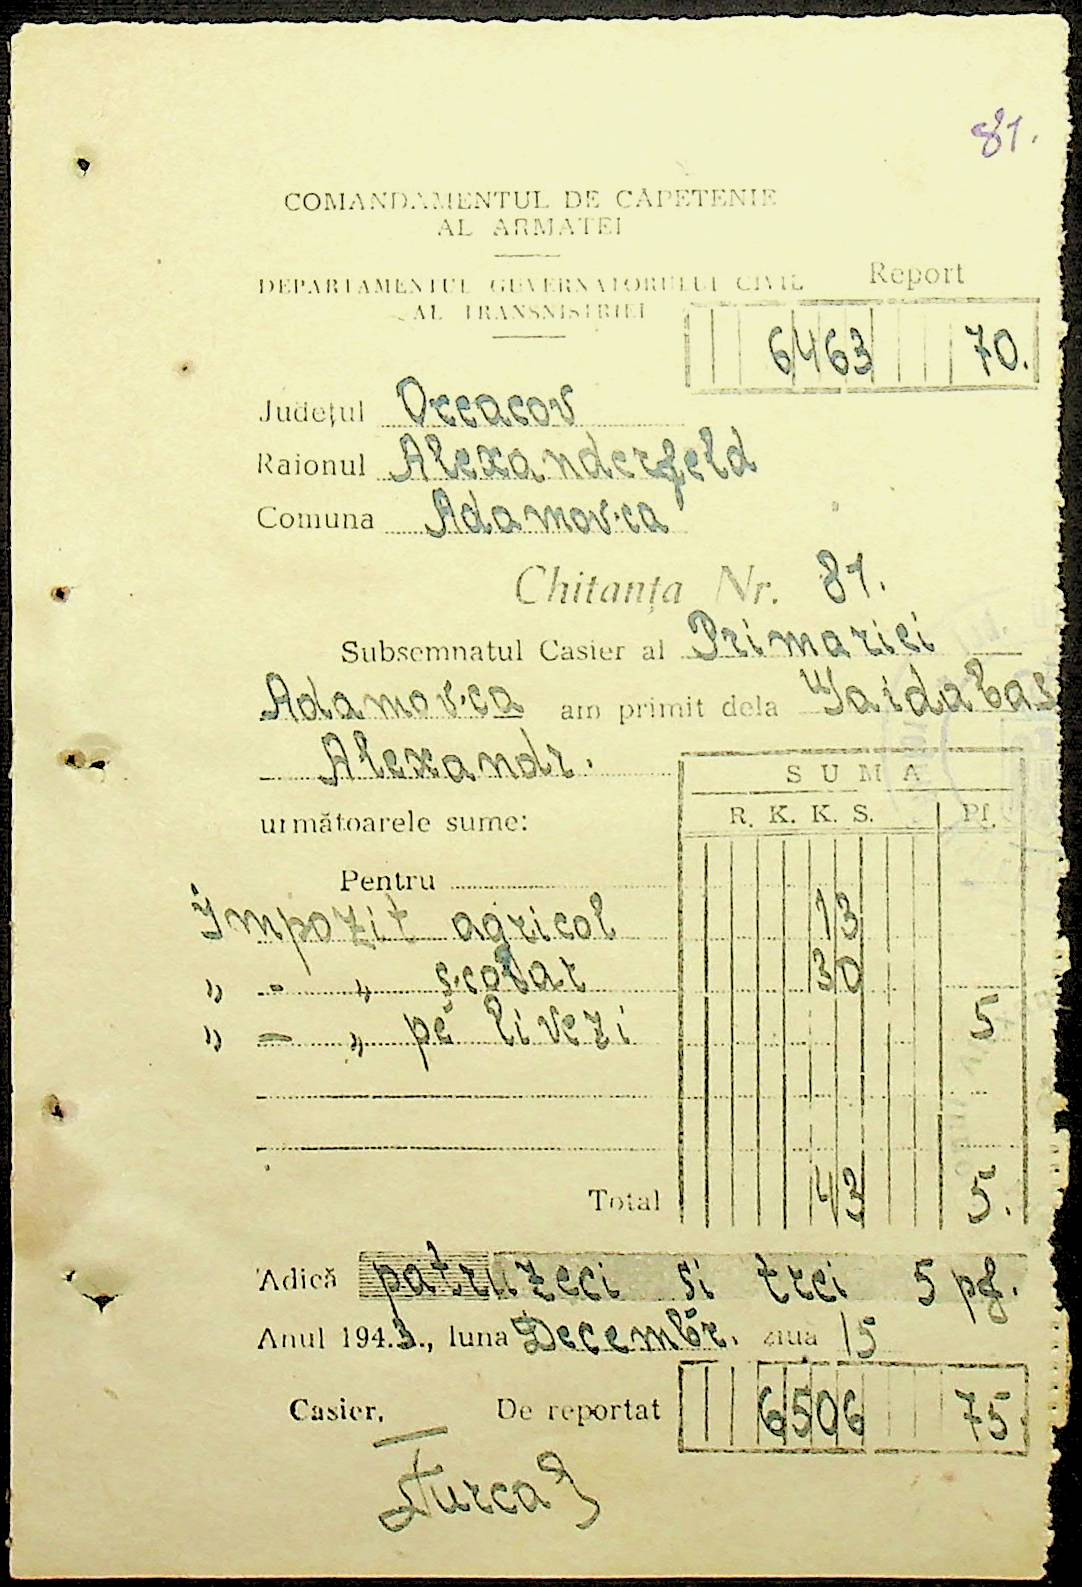 81.
COMANDAMENTUL DE CĂPETENIE
AL ARMATEI
DEPARTAMENTUL GUVERNATORULUI CIVIL
AL TRANSNISTRIEI
Report
6463 70.
Județul Occacov
Raionul Alexanderfeld
Comuna Adamovca
Chitanța Nr. 81.
Subsemnatul Casier al Primariei
Adamovca am primit dela Gaidabas
Alexandr.
următoarele sume:
SUMA
R. K. K. S. Pf.
Pentru
Impozit agricol 13
„ - „ școlar 30
„ - „ pe livezi 5
Total 43 5.
Adică patruzeci si trei 5 pf.
Anul 1943., luna Decembr. ziua 15
Casier, De reportat 6506 75.
Turca